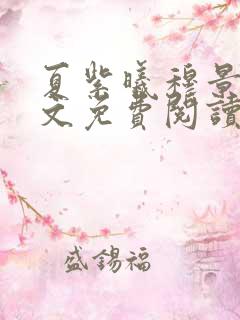 夏紫曦穆景
文免費閱讀
盛錫福